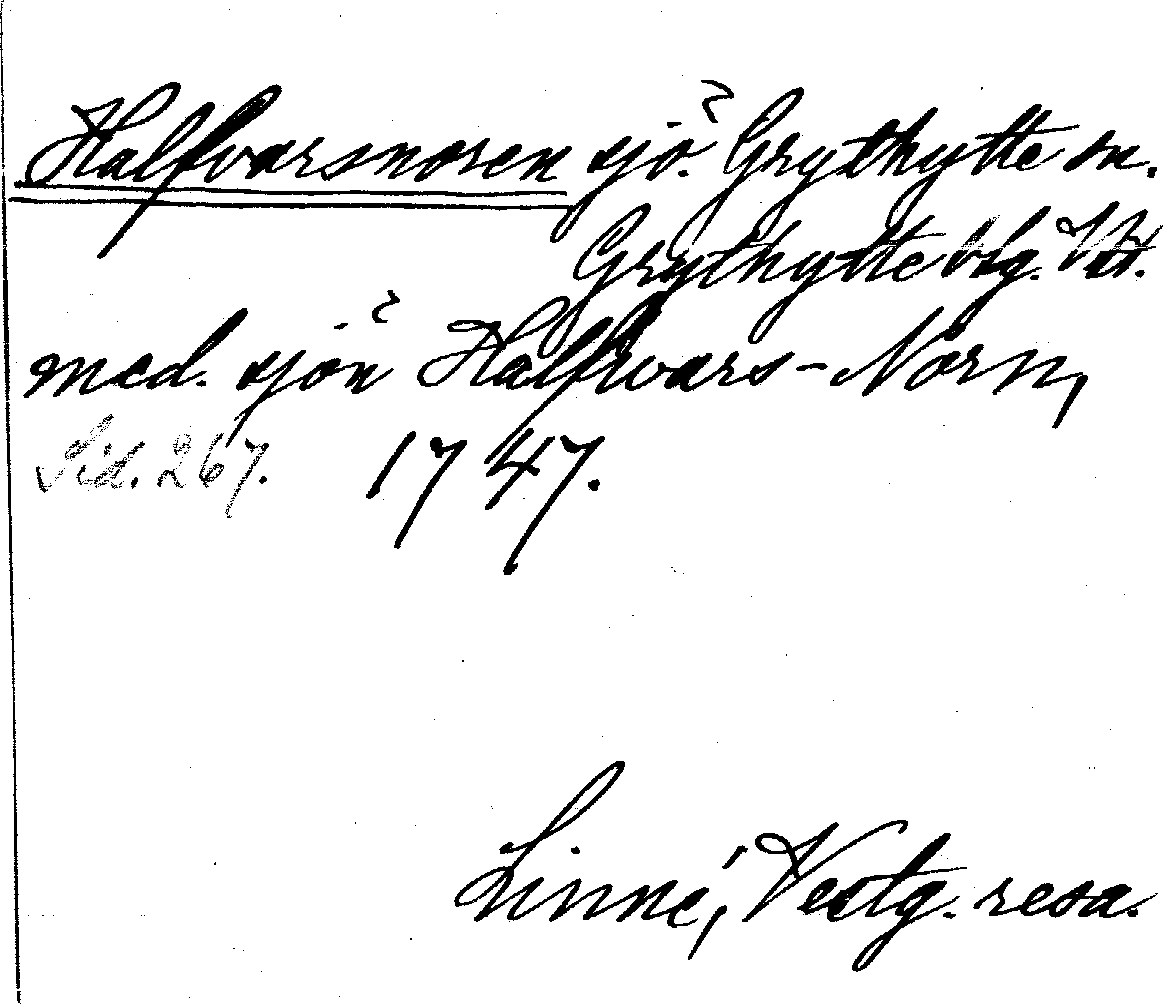 Halfvarsnoren sjö. Grythytte sn.
Grythytte blg. Vstm.
med. sjön Halfwars-Norn,
Sid. 267. 1747.
Linné, Vestg. resa.